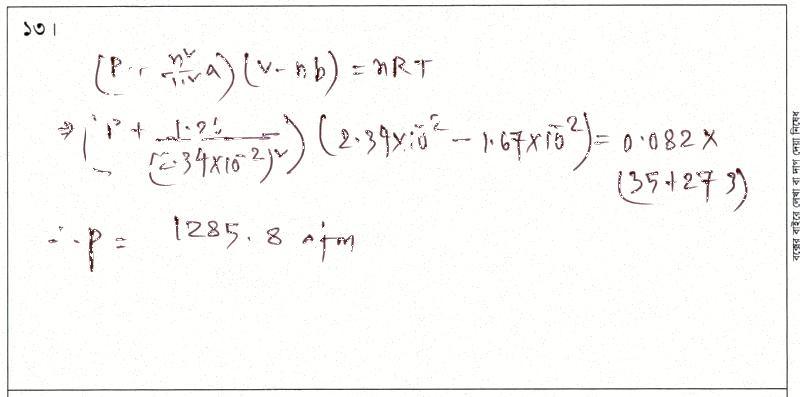 ১৩।
(P + n²/v² a) (v - nb) = nRT
⇒ (P + 1.2 / (2.34×10^-2)²) (2.34×10^-2 - 1.67×10^-2) = 0.082 ×
(35+273)
∴ P = 1285.8 atm
বক্সের বাইরে লেখা বা দাগ দেয়া নিষেধ